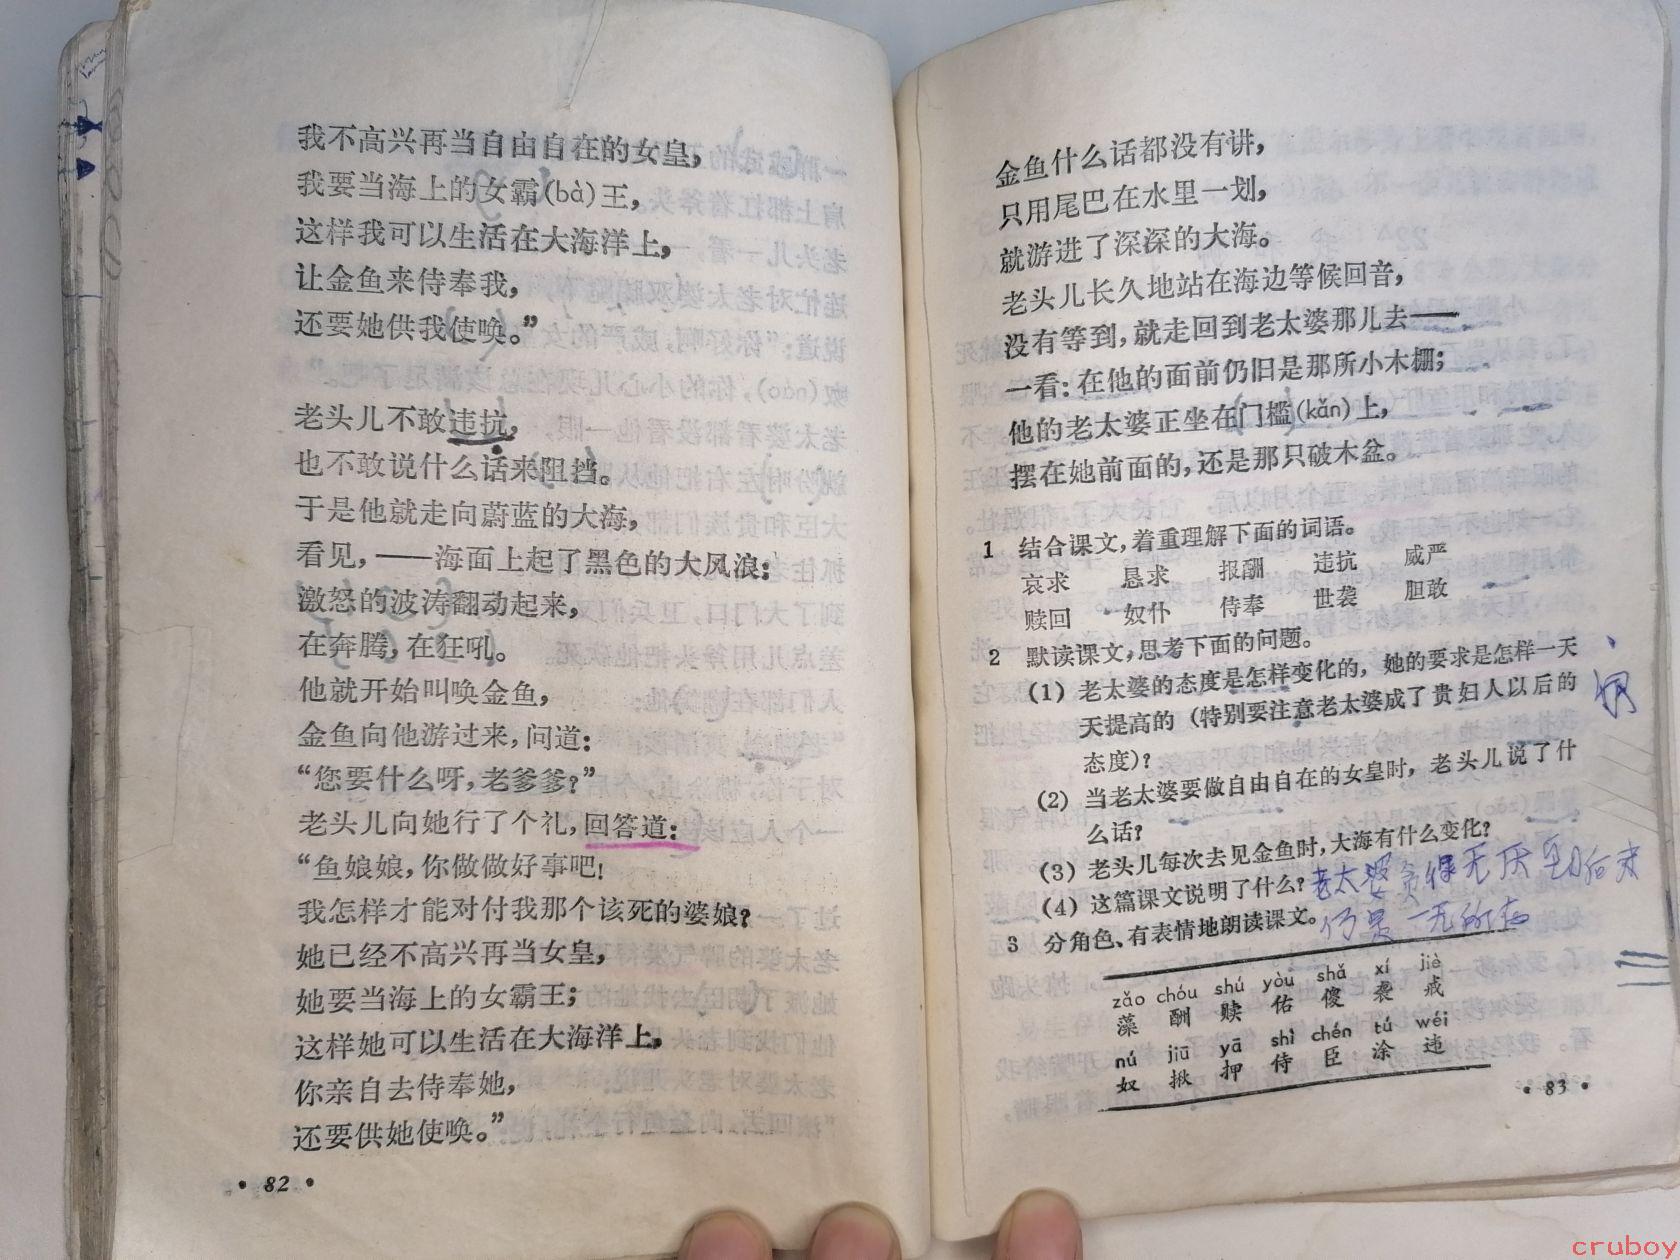 我不高兴再当自由自在的女皇，
我要当海上的女霸(bà)王，
这样我可以生活在大海洋上，
让金鱼来侍奉我，
还要她供我使唤。”
老头儿不敢违抗，
也不敢说什么话来阻挡。
于是他就走向蔚蓝的大海，
看见，——海面上起了黑色的大风浪：
激怒的波涛翻动起来，
在奔腾，在狂吼。
他就开始叫唤金鱼，
金鱼向他游过来，问道：
“您要什么呀，老爹爹？”
老头儿向她行了个礼，回答道：
“鱼娘娘，你做做好事吧！
我怎样才能对付我那个该死的婆娘？
她已经不高兴再当女皇，
她要当海上的女霸王；
这样她可以生活在大海洋上，
你亲自去侍奉她，
还要供她使唤。”
• 82 •
金鱼什么话都没有讲，
只用尾巴在水里一划，
就游进了深深的大海。
老头儿长久地站在海边等候回音，
没有等到，就走回到老太婆那儿去——
一看：在他的面前仍旧是那所小木棚；
他的老太婆正坐在门槛(kǎn)上，
摆在她前面的，还是那只破木盆。
1 结合课文，着重理解下面的词语。
哀求 恳求 报酬 违抗 威严
赎回 奴仆 侍奉 世袭 胆敢
2 默读课文，思考下面的问题。
(1) 老太婆的态度是怎样变化的，她的要求是怎样一天
天提高的（特别要注意老太婆成了贵妇人以后的
态度）？
(2) 当老太婆要做自由自在的女皇时，老头儿说了什
么话？
(3) 老头儿每次去见金鱼时，大海有什么变化？
(4) 这篇课文说明了什么？老太婆贪得无厌到后来
仍是一无所有
3 分角色、有表情地朗读课文。
zǎo chóu shú yòu shǎ xí jiè
藻 酬 赎 佑 傻 袭 戒
nú jiū yā shì chén tú wéi
奴 揪 押 侍 臣 涂 违
• 83 •
cruboy